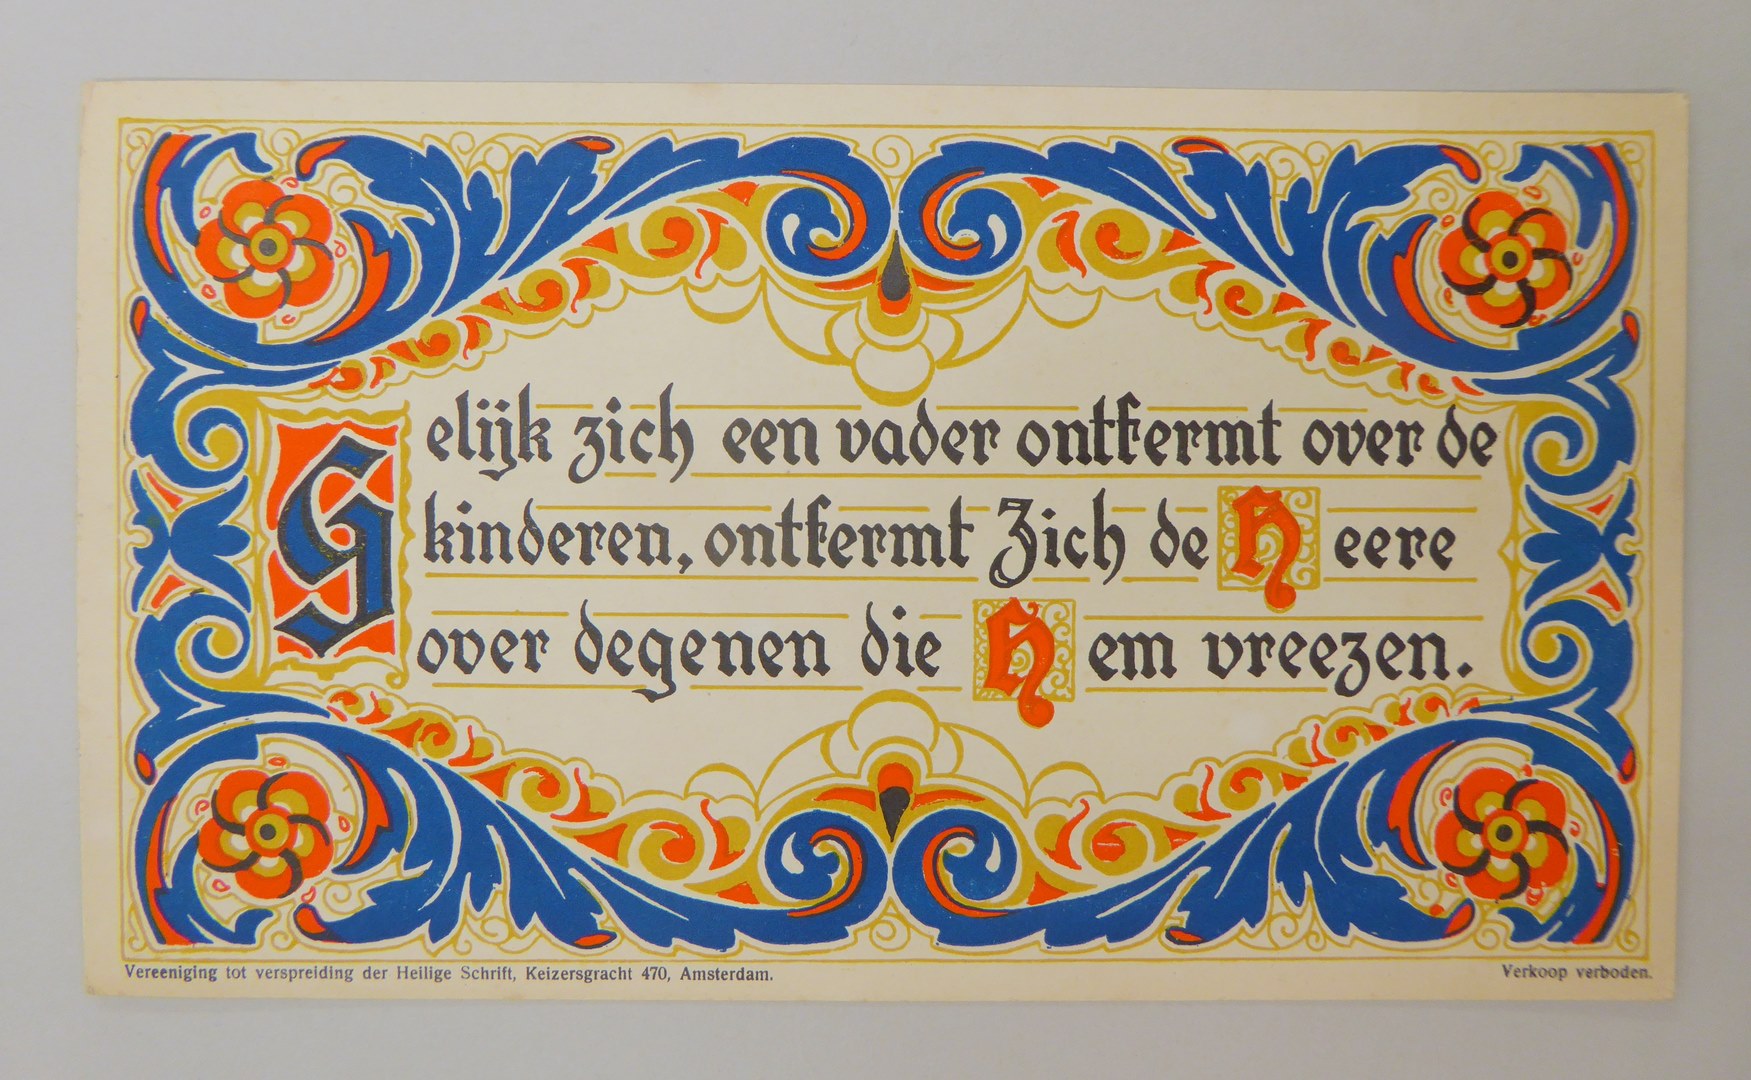 Gelijk zich een vader ontfermt over de
kinderen, ontfermt Zich de Heere
over degenen die Hem vreezen.
Vereeniging tot verspreiding der Heilige Schrift, Keizersgracht 470, Amsterdam.
Verkoop verboden.